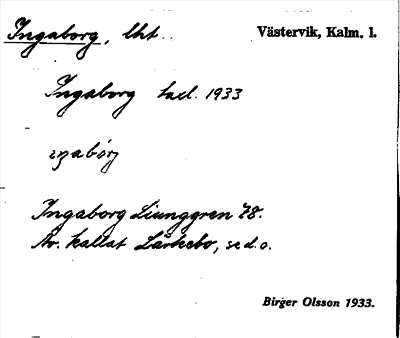 Ingaborg, lht.. Västervik, Kalm. l.
Ingaborg taxl. 1933
Ingaborg Liunggren 78.
Av. kallat Lärkebo, se d.o.
Birger Olsson 1933.